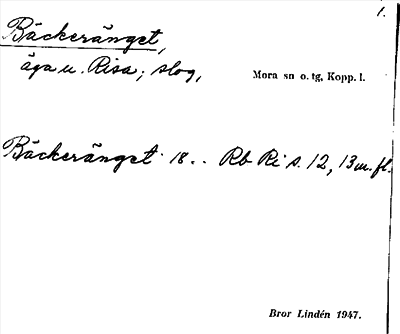 1.
Bäckeränget,
äga u. Risa; slog,
Mora sn o. tg, Kopp. l.
Bäckeränget 18.. Rb Ri s. 12, 13 m. fl.
Bror Lindén 1947.